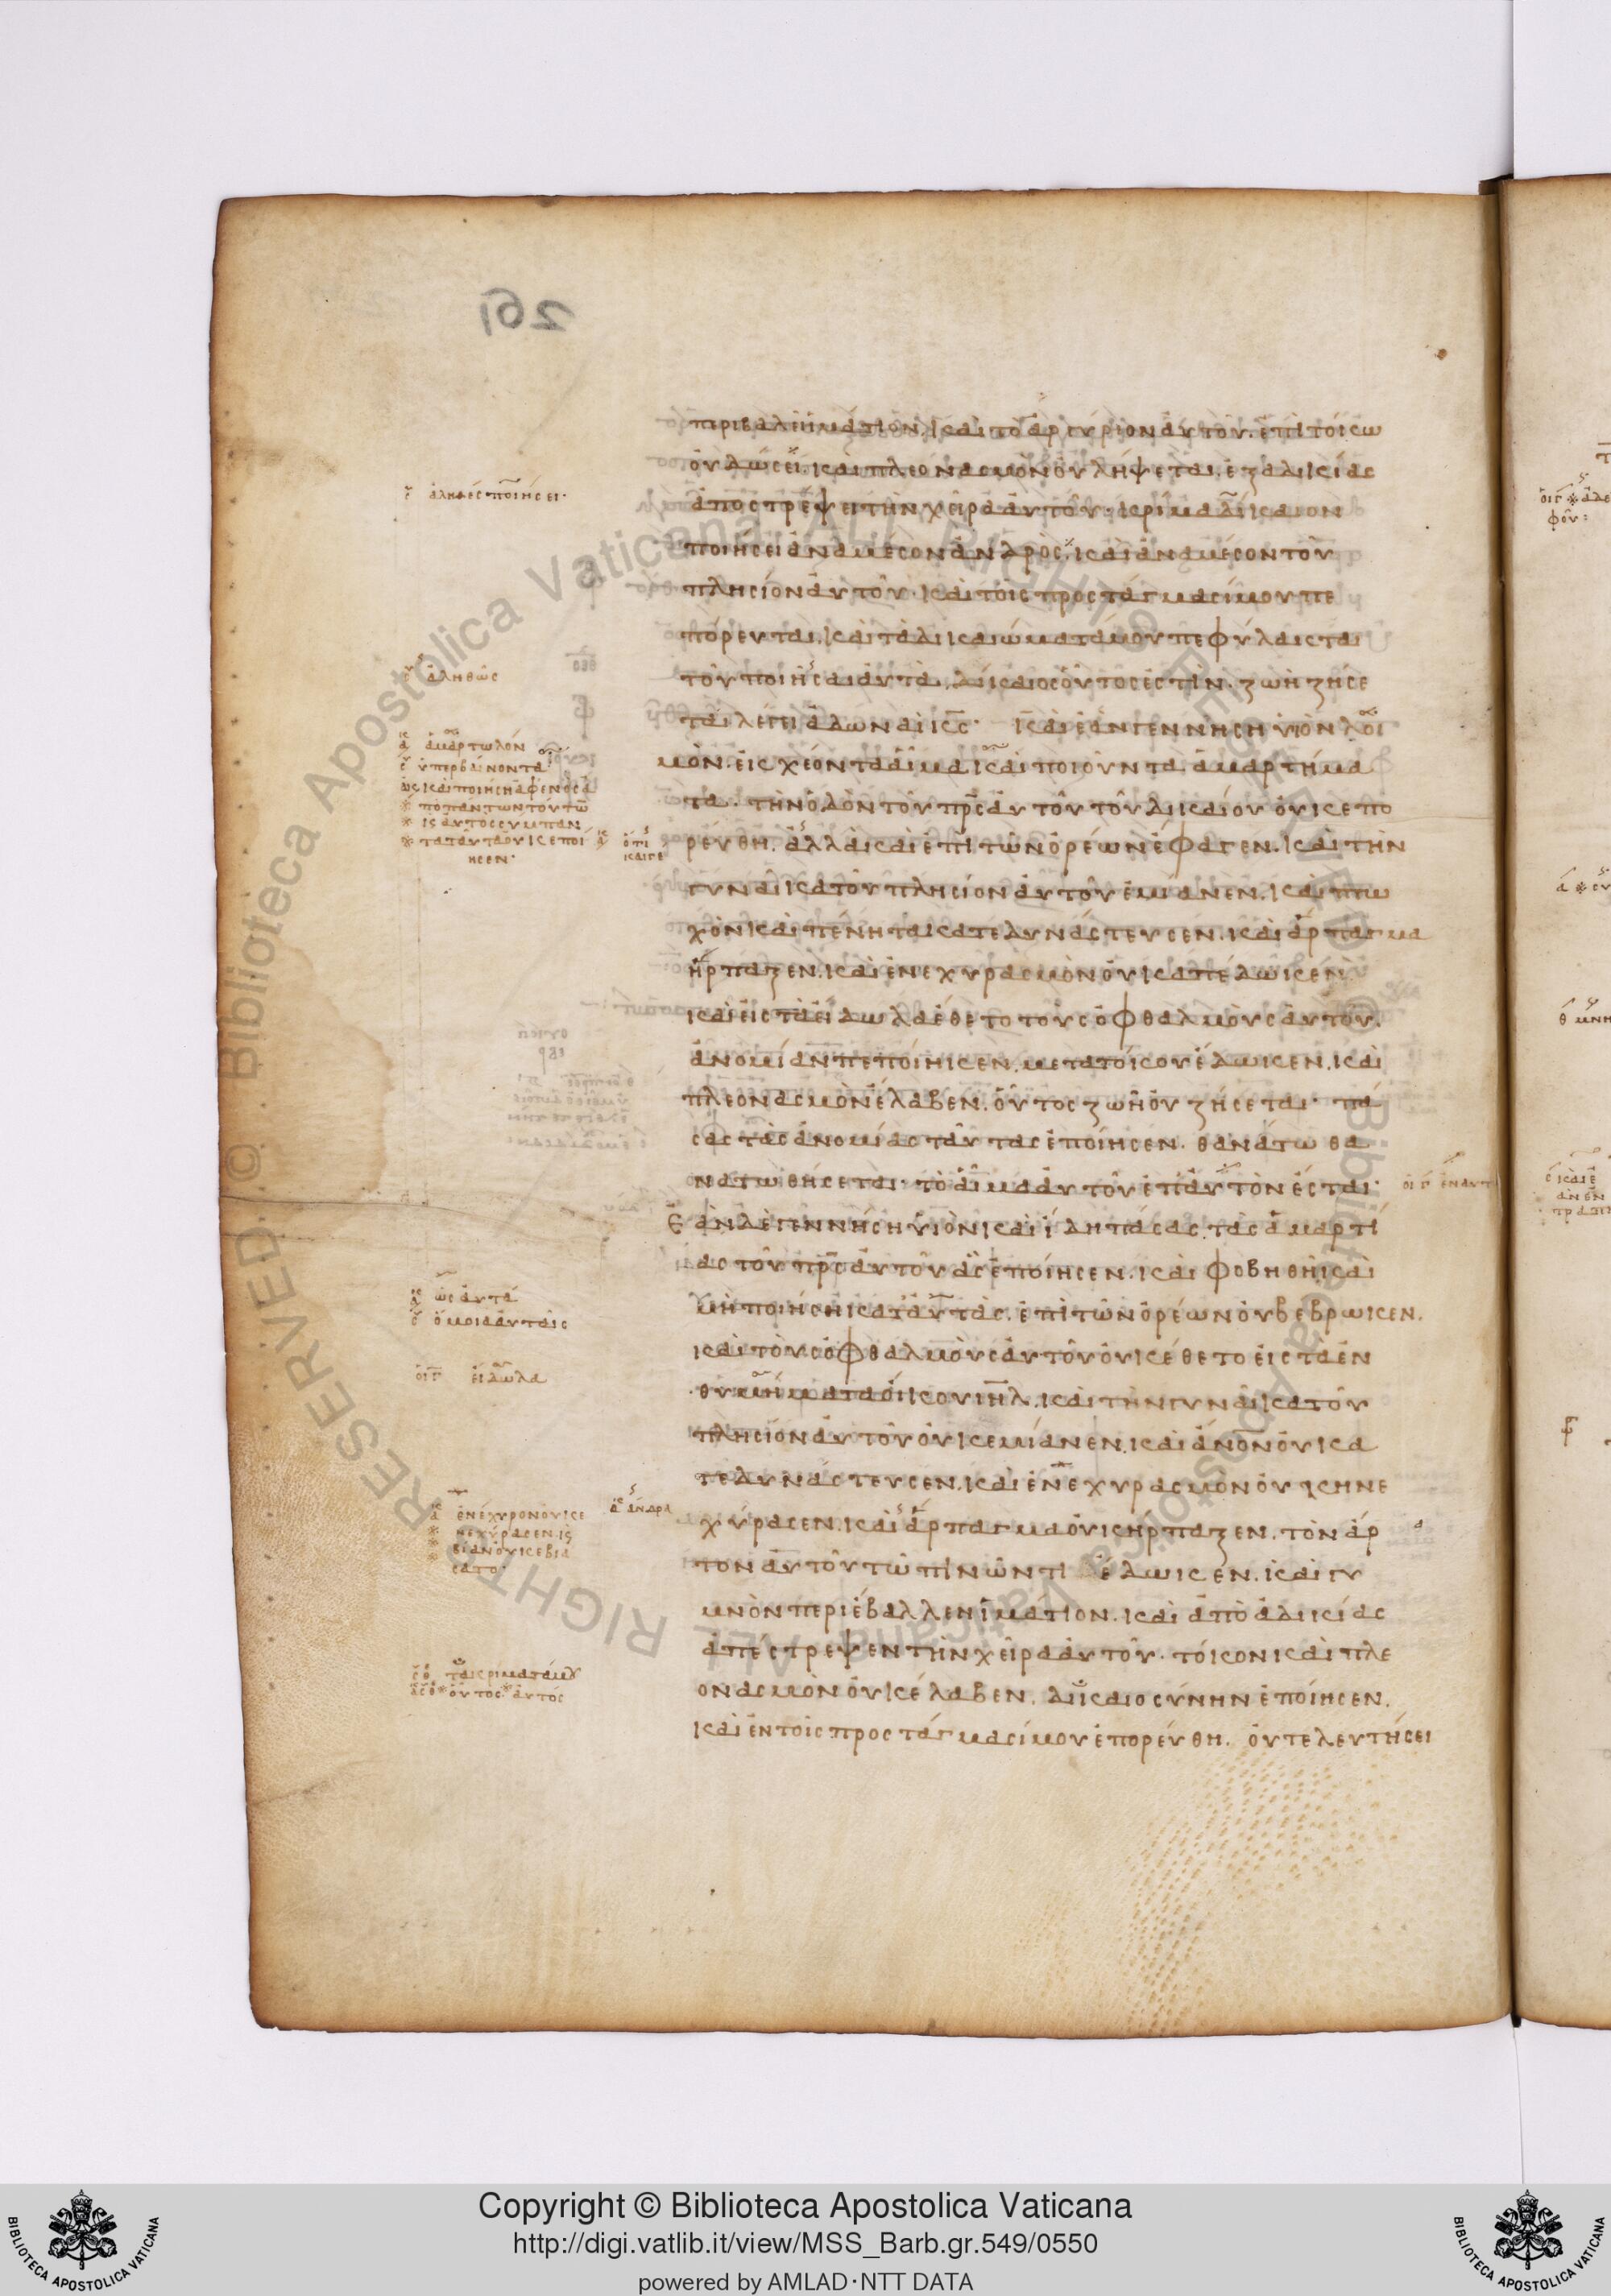 261
περιβαλεῖ ἱμάτιον. καὶ τὸ ἀργύριον αὐτοῦ. ἐπὶ τόκω
οὐ δώσει. καὶ πλεονασμὸν οὐ λήψεται. ἐξ ἀδικίας
ἀποστρέψει τὴν χεῖρα αὐτοῦ. κρίμα δίκαιον
ποιήσει ἀνὰ μέσον ἀνδρὸς. καὶ ἀνὰ μέσον τοῦ
πλησίον αὐτοῦ. καὶ τοῖς προστάγμασί μου πε
πόρευται. καὶ τὰ δικαιώματά μου πεφύλακται
τοῦ ποιῆσαι αὐτά. δίκαιος οὗτός ἐστιν. ζωῆ ζήσε
ται λέγει ἀδωναὶ κς. καὶ ἐὰν γεννήση υἱὸν λοι
μὸν. ἐκχέοντα αἷμα καὶ ποιοῦντα ἁμαρτήμα
τα. τὴν ὁδὸν τοῦ πρς αὐτοῦ τοῦ δικαίου οὐκ ἐπο
ρεύθη. ἀλλὰ καὶ ἐπὶ τῶν ὀρέων ἔφαγεν. καὶ τὴν
γυναῖκα τοῦ πλησίον αὐτοῦ ἐμίανεν. καὶ πτω
χὸν καὶ πένητα κατεδυνάστευσεν. καὶ ἅρπαγμα
ἥρπαξεν. καὶ ἐνεχυρασμὸν οὐκ ἀπέδωκεν
καὶ εἰς τὰ εἴδωλα ἔθετο τοὺς ὀφθαλμοὺς αὐτοῦ.
ἀνομίαν πεποίηκεν. μετὰ τόκου ἔδωκεν. καὶ
πλεονασμὸν ἔλαβεν. οὗτος ζωῆ οὐ ζήσεται. πά
σας τὰς ἀνομίας ταύτας ἐποίησεν. θανάτω θα
νατωθήσεται. τὸ αἷμα αὐτοῦ ἐπ' αὐτὸν ἔσται.
Ἐὰν δὲ γεννήση υἱὸν καὶ ἴδη πάσας. τὰς ἁμαρτί
ας τοῦ πρς αὐτοῦ ἃς ἐποίησεν. καὶ φοβηθῆ καὶ
μὴ ποιήση κατ' αὐτὰς. ἐπὶ τῶν ὀρέων οὐ βέβρωκεν.
καὶ τοὺς ὀφθαλμοὺς αὐτοῦ οὐκ ἔθετο εἰς τὰ ἐν
θυμήματα οἴκου ιηλ. καὶ τὴν γυναῖκα τοῦ
πλησίον αὐτοῦ οὐκ ἐμίανεν. καὶ ἄνον οὐ κα
τεδυνάστευσεν. καὶ ἐνεχυρασμὸν οὐκ ἠνε
χύρασεν. καὶ ἅρπαγμα οὐκ ἥρπαξεν. τὸν ἄρ
τον αὐτοῦ τῶ πινῶντι ἔδωκεν. καὶ γυ
μνὸν περιέβαλλεν ἱμάτιον. καὶ ἀπὸ ἀδικίας
ἀπέστρεψεν τὴν χεῖρα αὐτοῦ. τόκον καὶ πλε
ονασμὸν οὐκ ἔλαβεν. δικαιοσύνην ἐποίησεν.
καὶ ἐν τοῖς προστάγμασί μου ἐπορεύθη. οὐ τελευτήσει
ἀληθὲς ποιήσει.
ἀληθῶς
ἁμαρτωλόν
ὑπερβαίνοντα
ἀπὸ πάντων τούτω
αὐτὸς σύμπαν
τα ταῦτα οὐκ ἐποί
ησεν.
ὅτι
καίγε
ὡς αὐτά
ὅμοια αὐταῖς
εἴδωλα
ἐνέχυρον οὐκ ἐ
νεχύρασεν. κ
βίαν οὐκ ἐβιά
σατο
ἄνδρα
τὰ κρίματά μου
οὗτος αὐτός
Copyright © Biblioteca Apostolica Vaticana
http://digi.vatlib.it/view/MSS_Barb.gr.549/0550
powered by AMLAD·NTT DATA
BIBLIOTECA APOSTOLICA VATICANA
BIBLIOTECA APOSTOLICA VATICANA
© Biblioteca Apostolica Vaticana ALL RIGHTS RESERVED